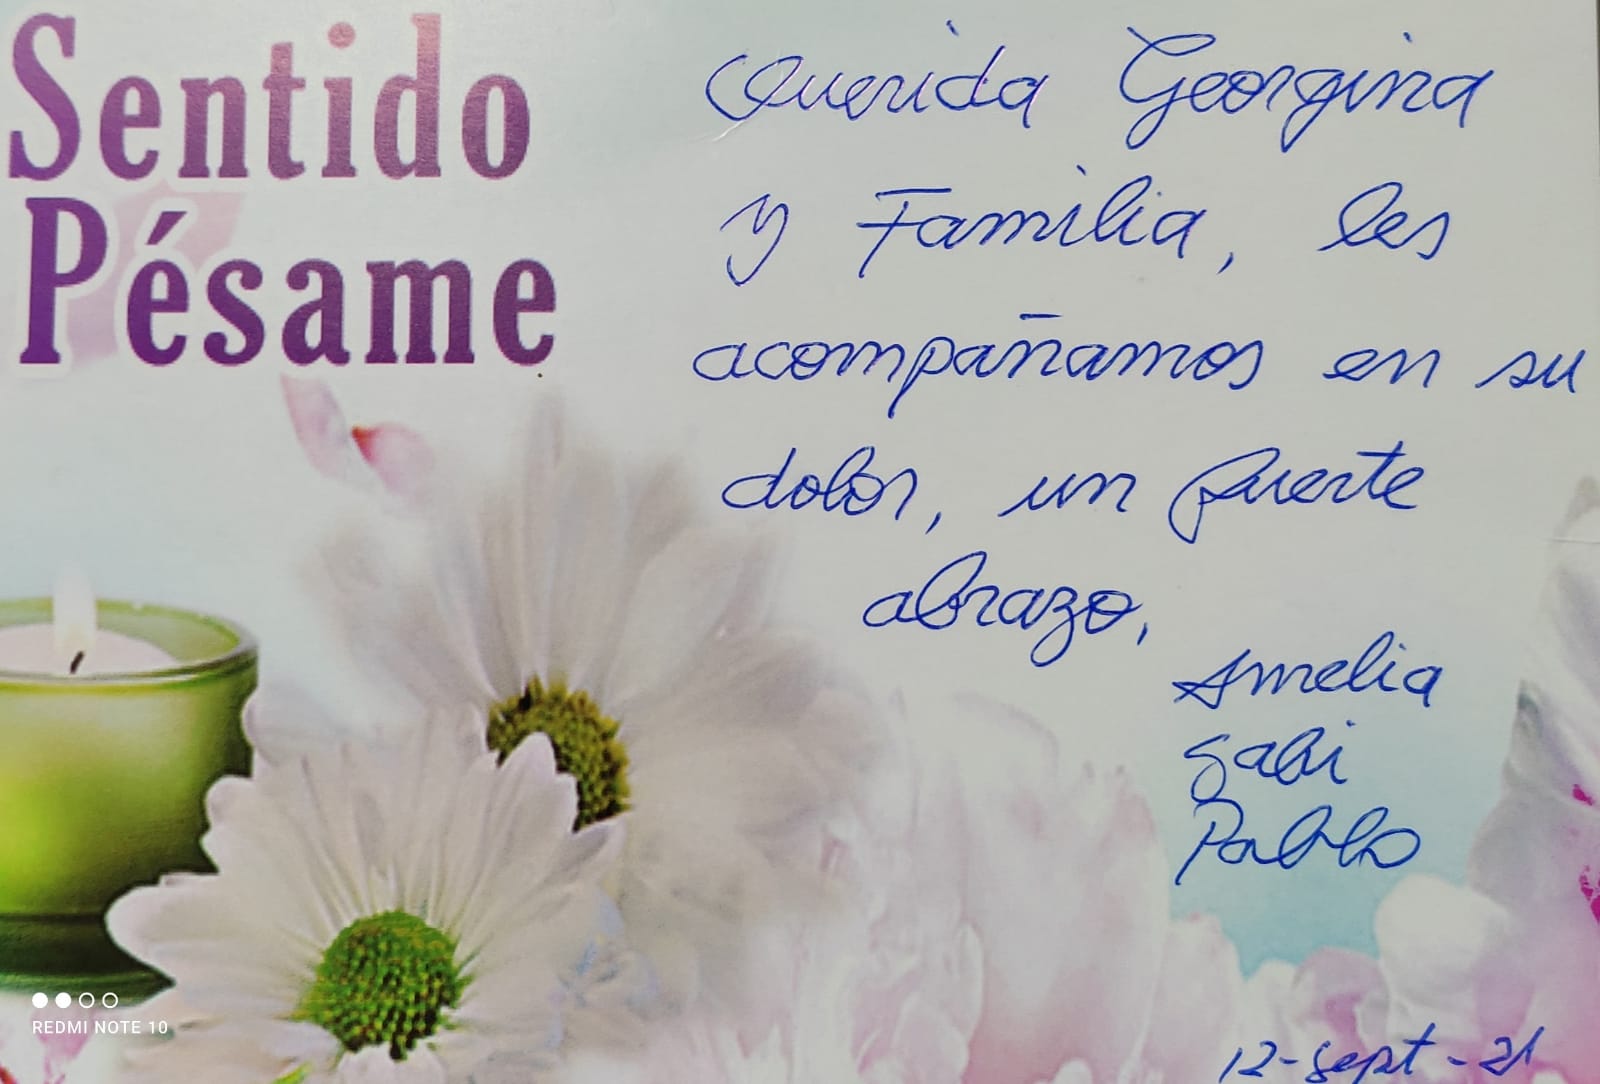 Sentido
Pésame
Querida Georgina
y Familia, les
acompañamos en su
dolor, un fuerte
abrazo,
Amelia
Gabi
Pablo
12-sept-21
REDMI NOTE 10